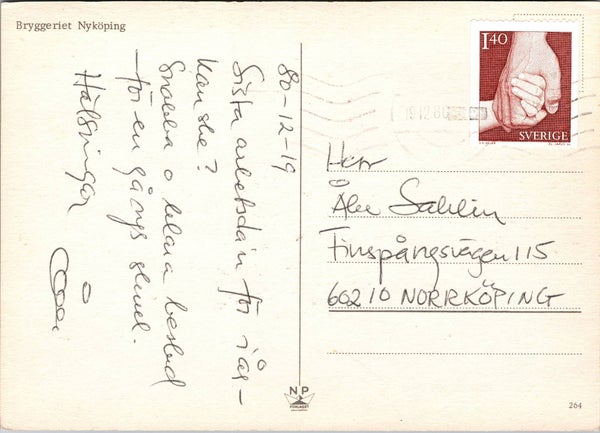 Bryggeriet Nyköping
80-12-19
Sista arbetsdan för i år -
kanske?
Snabba o klara besked
- för en gångs skull.
Hälsningar
1.40
SVERIGE
19 12 80
Herr
Åke Sahlin
Finspångsvägen 115
60210 NORRKÖPING
NP
FÖRLAGET
264